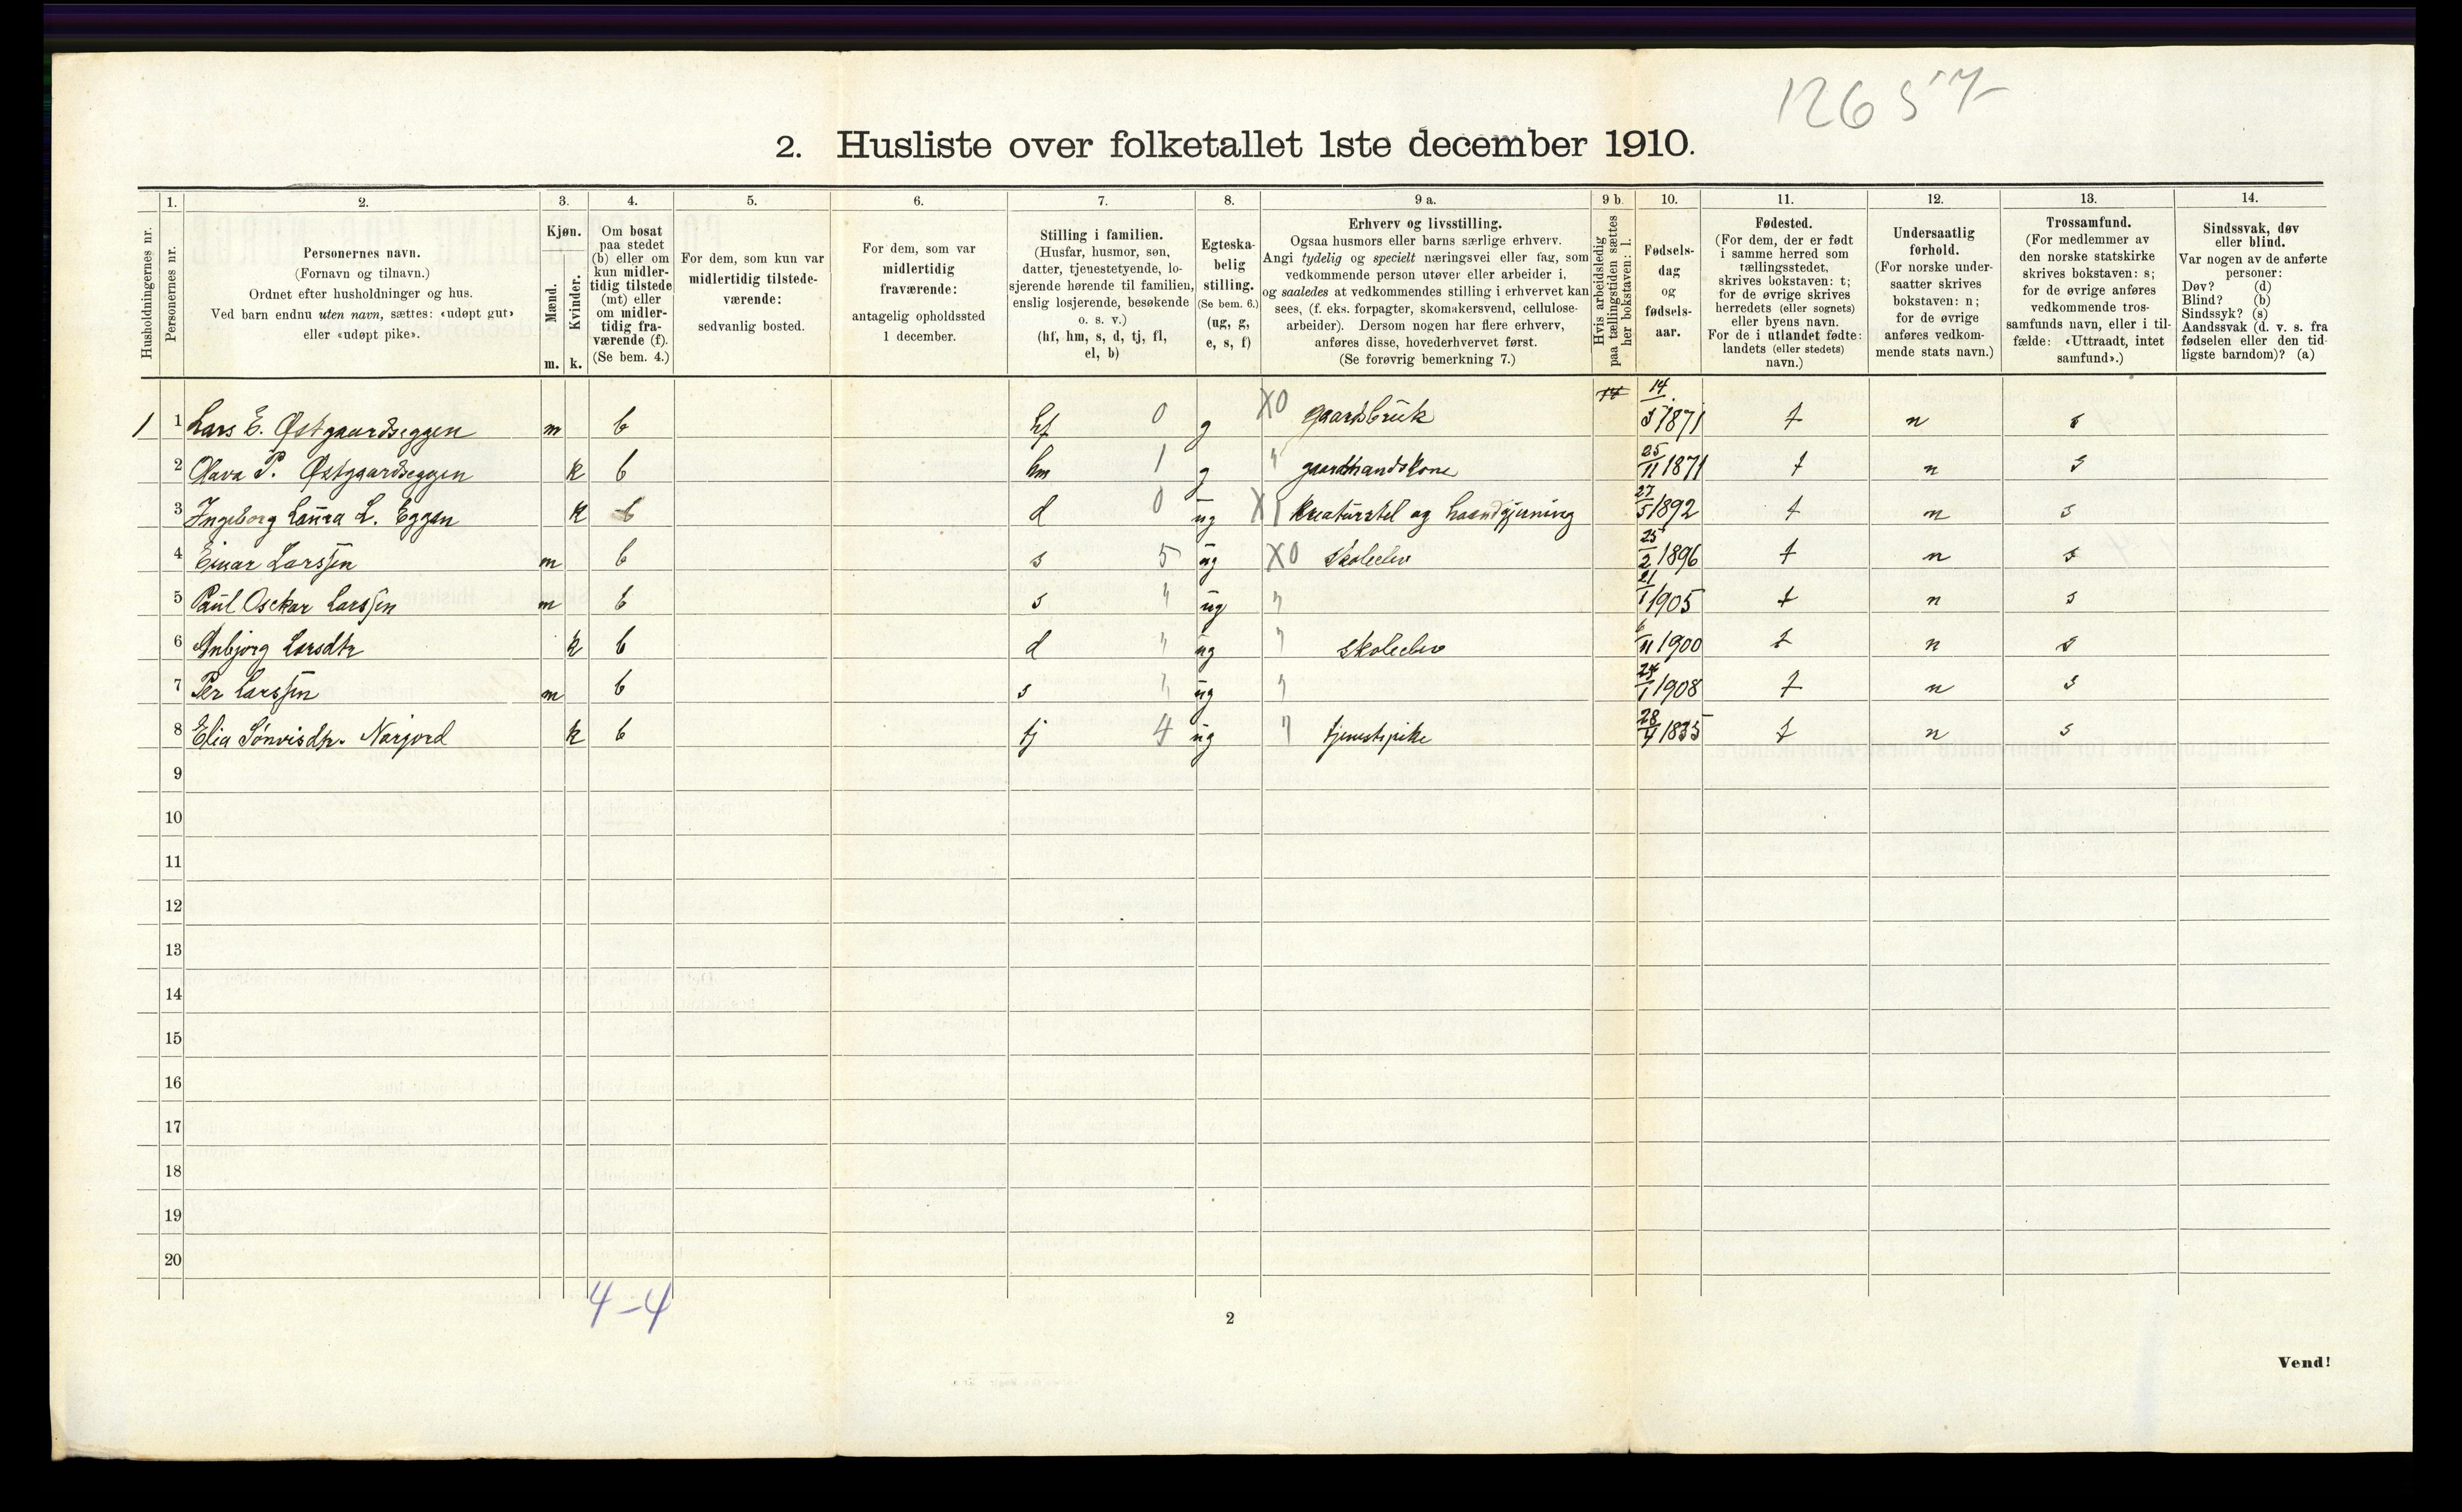 12657
2. Husliste over folketallet 1ste december 1910.
Husholdningernes nr.
1.
Personernes nr.
2.
Personernes navn.
(Fornavn og tilnavn.)
Ordnet efter husholdninger og hus.
Ved barn endnu uten navn, sættes: «udøpt gut»
eller «udøpt pike».
3.
Kjøn.
Mænd. Kvinder.
m. k.
4.
Om bosat
paa stedet
(b) eller om
kun midler-
tidig tilstede
(mt) eller
om midler-
tidig fra-
værende (f).
(Se bem. 4.)
5.
For dem, som kun var
midlertidig tilstede-
værende:
sedvanlig bosted.
6.
For dem, som var
midlertidig
fraværende:
antagelig opholdssted
1 december.
7.
Stilling i familien.
(Husfar, husmor, søn,
datter, tjenestetyende, lo-
sjerende hørende til familien,
enslig losjerende, besøkende
o. s. v.)
(hf, hm, s, d, tj, fl,
el, b)
8.
Egteska-
belig
stilling.
(Se bem. 6.)
(ug, g,
e, s, f)
9 a.
Erhverv og livsstilling.
Ogsaa husmors eller barns særlige erhverv.
Angi tydelig og specielt næringsvei eller fag, som
vedkommende person utøver eller arbeider i,
og saaledes at vedkommendes stilling i erhvervet kan
sees, (f. eks. forpagter, skomakersvend, cellulose-
arbeider). Dersom nogen har flere erhverv,
anføres disse, hovederhvervet først.
(Se forøvrig bemerkning 7.)
9 b.
Hvis arbeidsledig
paa tællingstiden sættes
her bokstaven: l.
10.
Fødsels-
dag
og
fødsels-
aar.
11.
Fødested.
(For dem, der er født
i samme herred som
tællingsstedet,
skrives bokstaven: t;
for de øvrige skrives
herredets (eller sognets)
eller byens navn.
For de i utlandet fødte:
landets (eller stedets)
navn.)
12.
Undersaatlig
forhold.
(For norske under-
saatter skrives
bokstaven: n;
for de øvrige
anføres vedkom-
mende stats navn.)
13.
Trossamfund.
(For medlemmer av
den norske statskirke
skrives bokstaven: s;
for de øvrige anføres
vedkommende tros-
samfunds navn, eller i til-
fælde: «Uttraadt, intet
samfund».)
14.
Sindssvak, døv
eller blind.
Var nogen av de anførte
personer:
Døv? (d)
Blind? (b)
Sindssyk? (s)
Aandssvak (d. v. s. fra
fødselen eller den tid-
ligste barndom)? (a)
1 1 Lars E. Østgaardseggen m b hf 0 g X0 Gaardsbruk 14/5 1871 t n s
2 Olava P. Østgaardseggen k b hm 1 g " gaardmandskone 25/11 1871 t n s
3 Ingeborg Laura L. Eggen k b d 0 ug X1 Kreaturstel og haandgjerning 27/5 1892 t n s
4 Einar Larssen m b s 5 ug X0 Skoleelev 25/2 1896 t n s
5 Paul Osckar Larssen m b s " ug " 21/1 1905 t n s
6 Anbjørg Larsdtr k b d " ug " skoleelev 6/11 1900 t n s
7 Per Larssen m b s " ug " 24/1 1908 t n s
8 Elia Sønvisdtr. Narjord k b tj 4 ug " tjenestepike 28/4 1835 t n s
9
10
11
12
13
14
15
16
17
18
19
20
4-4
2
Vend!